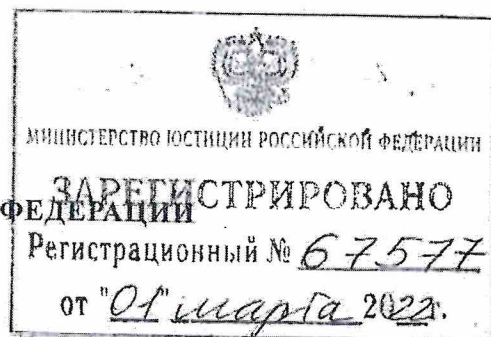 МИНИСТЕРСТВО ЮСТИЦИИ РОССИЙСКОЙ ФЕДЕРАЦИИ
ЗАРЕГИСТРИРОВАНО
ФЕДЕРАЦИИ
Регистрационный № 67577
от "01" марта 2022г.